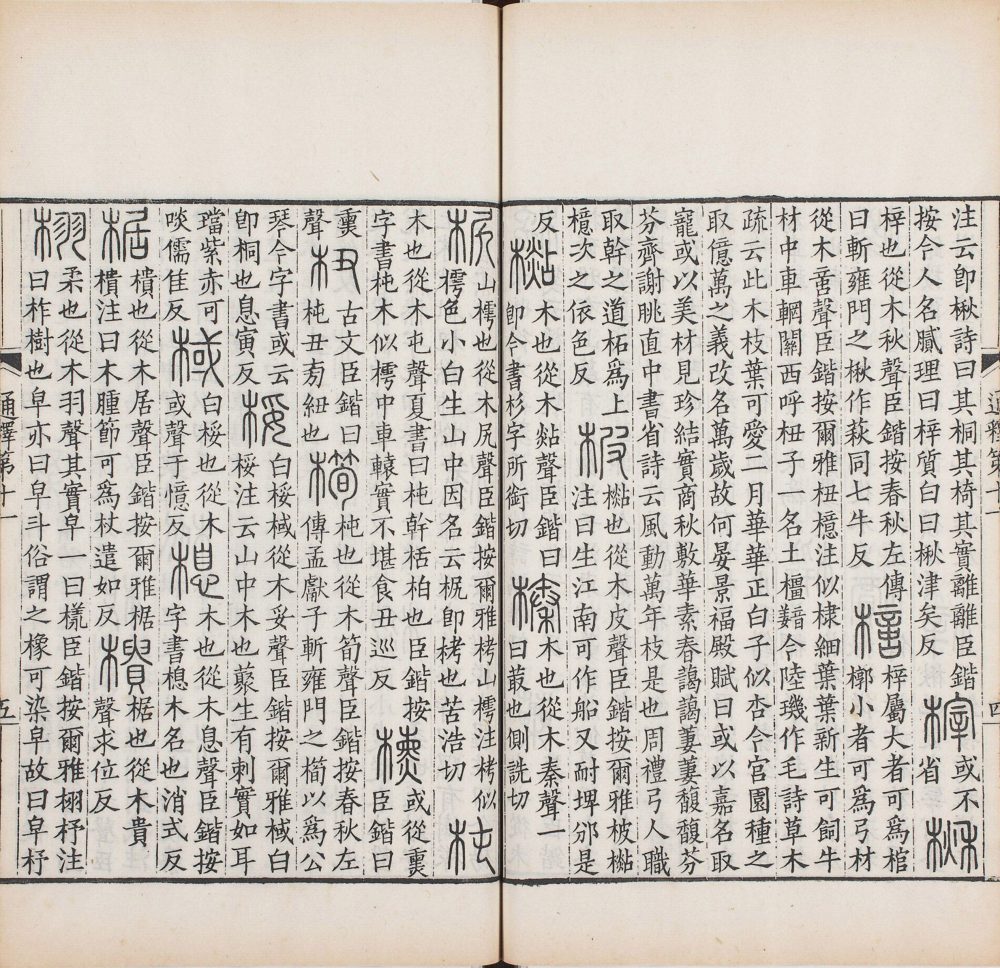 注云卽楸詩曰其桐其椅其實離離臣鍇
按今人名膩理曰梓質白曰楸津矣反 梓 或不省 楸
梓也從木秋聲臣鍇按春秋左傳
曰斬雍門之楸作萩同七牛反 檍 梓屬大者可爲棺
槨小者可爲弓材
從木啻聲臣鍇按爾雅杻檍注似棣細葉葉新生可飼牛
材中車輞關西呼杻子一名土橿䵻今陸璣作毛詩草木
疏云此木枝葉可愛二月華華正白子似杏今官園種之
取億萬之義改名萬歲故何晏景福殿賦曰或以嘉名取
寵或以美材見珍結實商秋敷華素春藹藹萋萋馥馥芬
芬齊謝眺直中書省詩云風動萬年枝是也周禮弓人職
取幹之道柘爲上
檍次之依色反 柀 㯳也從木皮聲臣鍇按爾雅柀㯳
注曰生江南可作船又耐埤邠是
反 㯳 木也從木㷖聲臣鍇曰
卽今書杉字所銜切 榛 木也從木秦聲一
曰菆也側詵切
𣐊 山樗也從木尻聲臣鍇按爾雅栲山樗注栲似
樗色小白生山中因名云𣐊卽栲也苦浩切 杶
木也從木屯聲夏書曰杶幹栝柏也臣鍇按
字書杶木似樗中車轅實不堪食丑巡反 櫄 或從熏
臣鍇曰
熏 杻 古文臣鍇曰
聲 杻 杶丑㕛紐也 橁 杶也從木筍聲臣鍇按春秋左
傳孟獻子斬雍門之橁以爲公
琴今字書或云
卽桐也息寅反 桵 白桵棫從木妥聲臣鍇按爾雅棫白
桵注云山中木也藂生有刺實如耳
璫紫赤可
啖儒隹反 棫 白桵也從木
或聲于憶反 楒 木也從木息聲臣鍇按
字書楒木名也消式反
椐 樻也從木居聲臣鍇按爾雅椐
樻注曰木腫節可爲杖遣如反 樻 椐也從木貴
聲求位反
栩 柔也從木羽聲其實皁一曰樣臣鍇按爾雅栩杼注
曰柞樹也皁亦曰皁斗俗謂之橡可染皁故曰皁杼
通釋第十一
四
通釋第十一
五